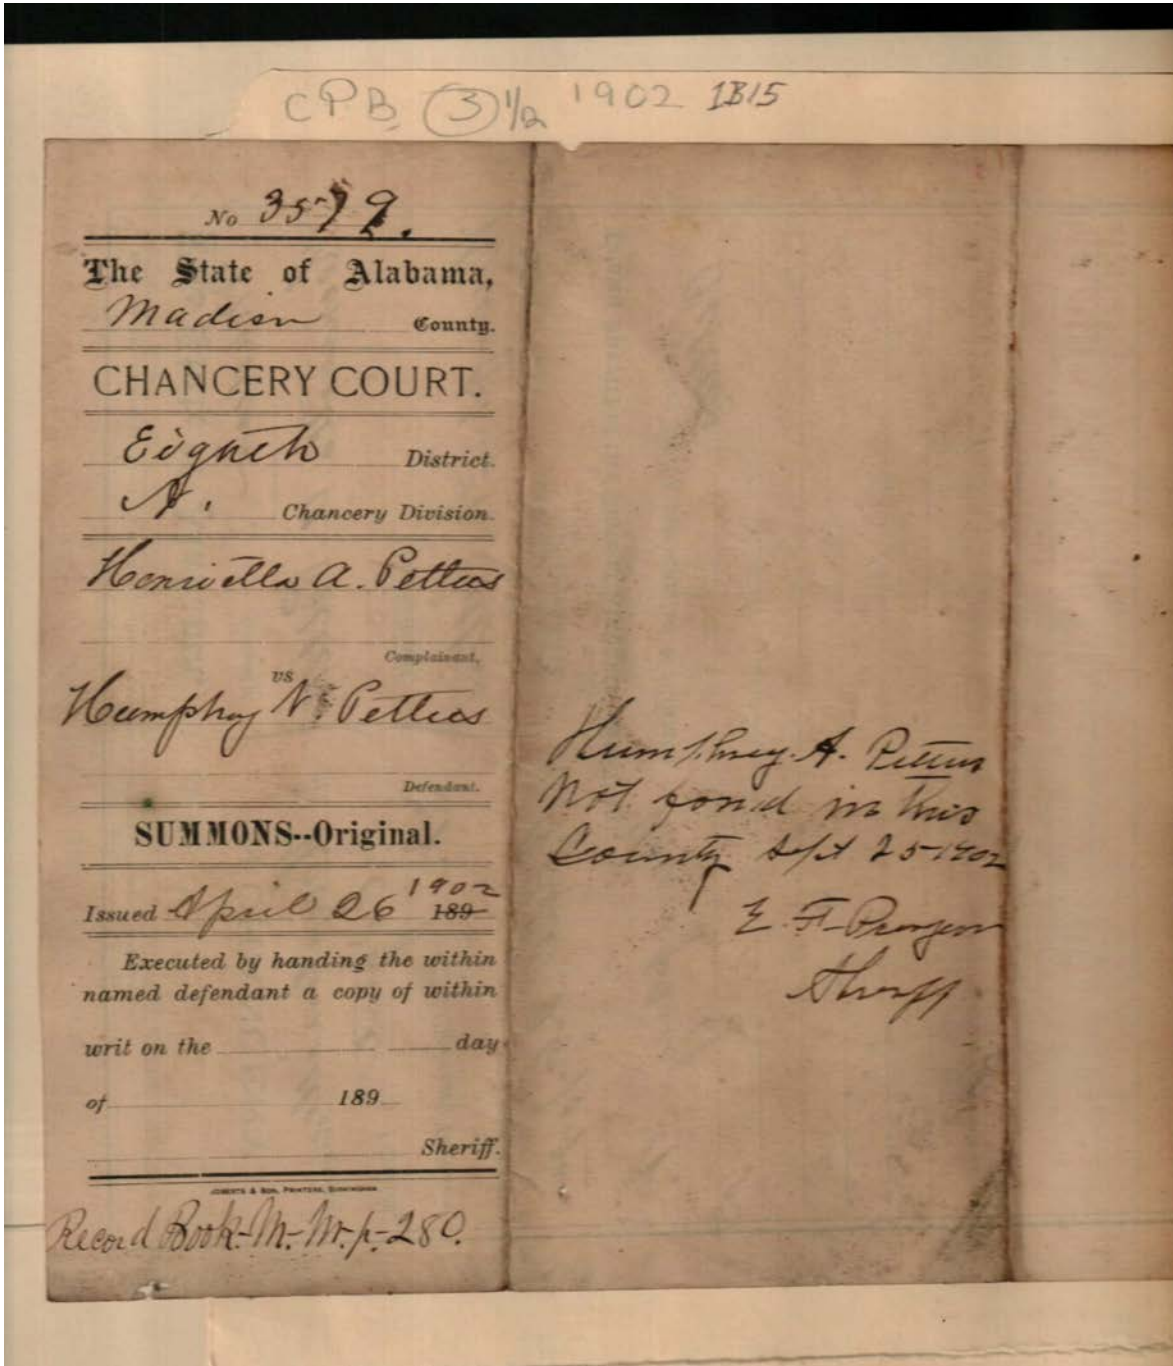 CPB (3) 1/2 1902 1B15
No 3579.
The State of Alabama,
Madison County.
CHANCERY COURT.
Eighth District.
N. Chancery Division.
Henrietta A. Pettus
Complainant,
vs
Humphrey N. Pettus
Defendant.
SUMMONS--Original.
Issued April 26 1902 189
Executed by handing the within
named defendant a copy of within
writ on the day
of 189
Sheriff.
ROBERTS & SON, PRINTERS, BIRMINGHAM
Record Book-M-M-p-280.
Humphrey A. Pettus
Not fond in this
County Sept 25-1902
E. F.
Sheriff